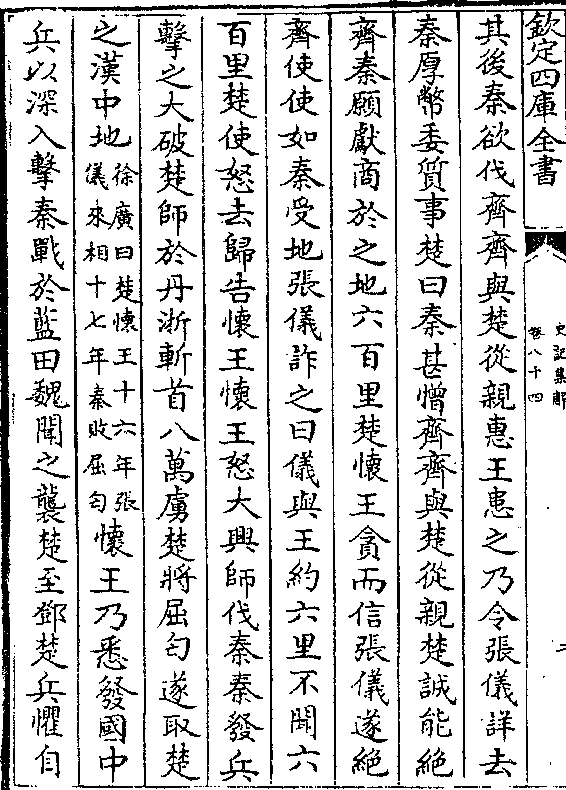 欽定四庫全書
史記集解
卷八十四
二
其後秦欲伐齊齊與楚從親惠王患之乃令張儀詳去
秦厚幣委質事楚曰秦甚憎齊齊與楚從親楚誠能絶
齊秦願獻商於之地六百里楚懷王貪而信張儀遂絶
齊使使如秦受地張儀詐之曰儀與王約六里不聞六
百里楚使怒去歸告懷王懷王怒大興師伐秦秦發兵
擊之大破楚師於丹淅斬首八萬虜楚將屈匄遂取楚
之漢中地徐廣曰楚懷王十六年張儀來相十七年秦敗屈匄懷王乃悉發國中
兵以深入擊秦戰於藍田魏聞之襲楚至鄧楚兵懼自